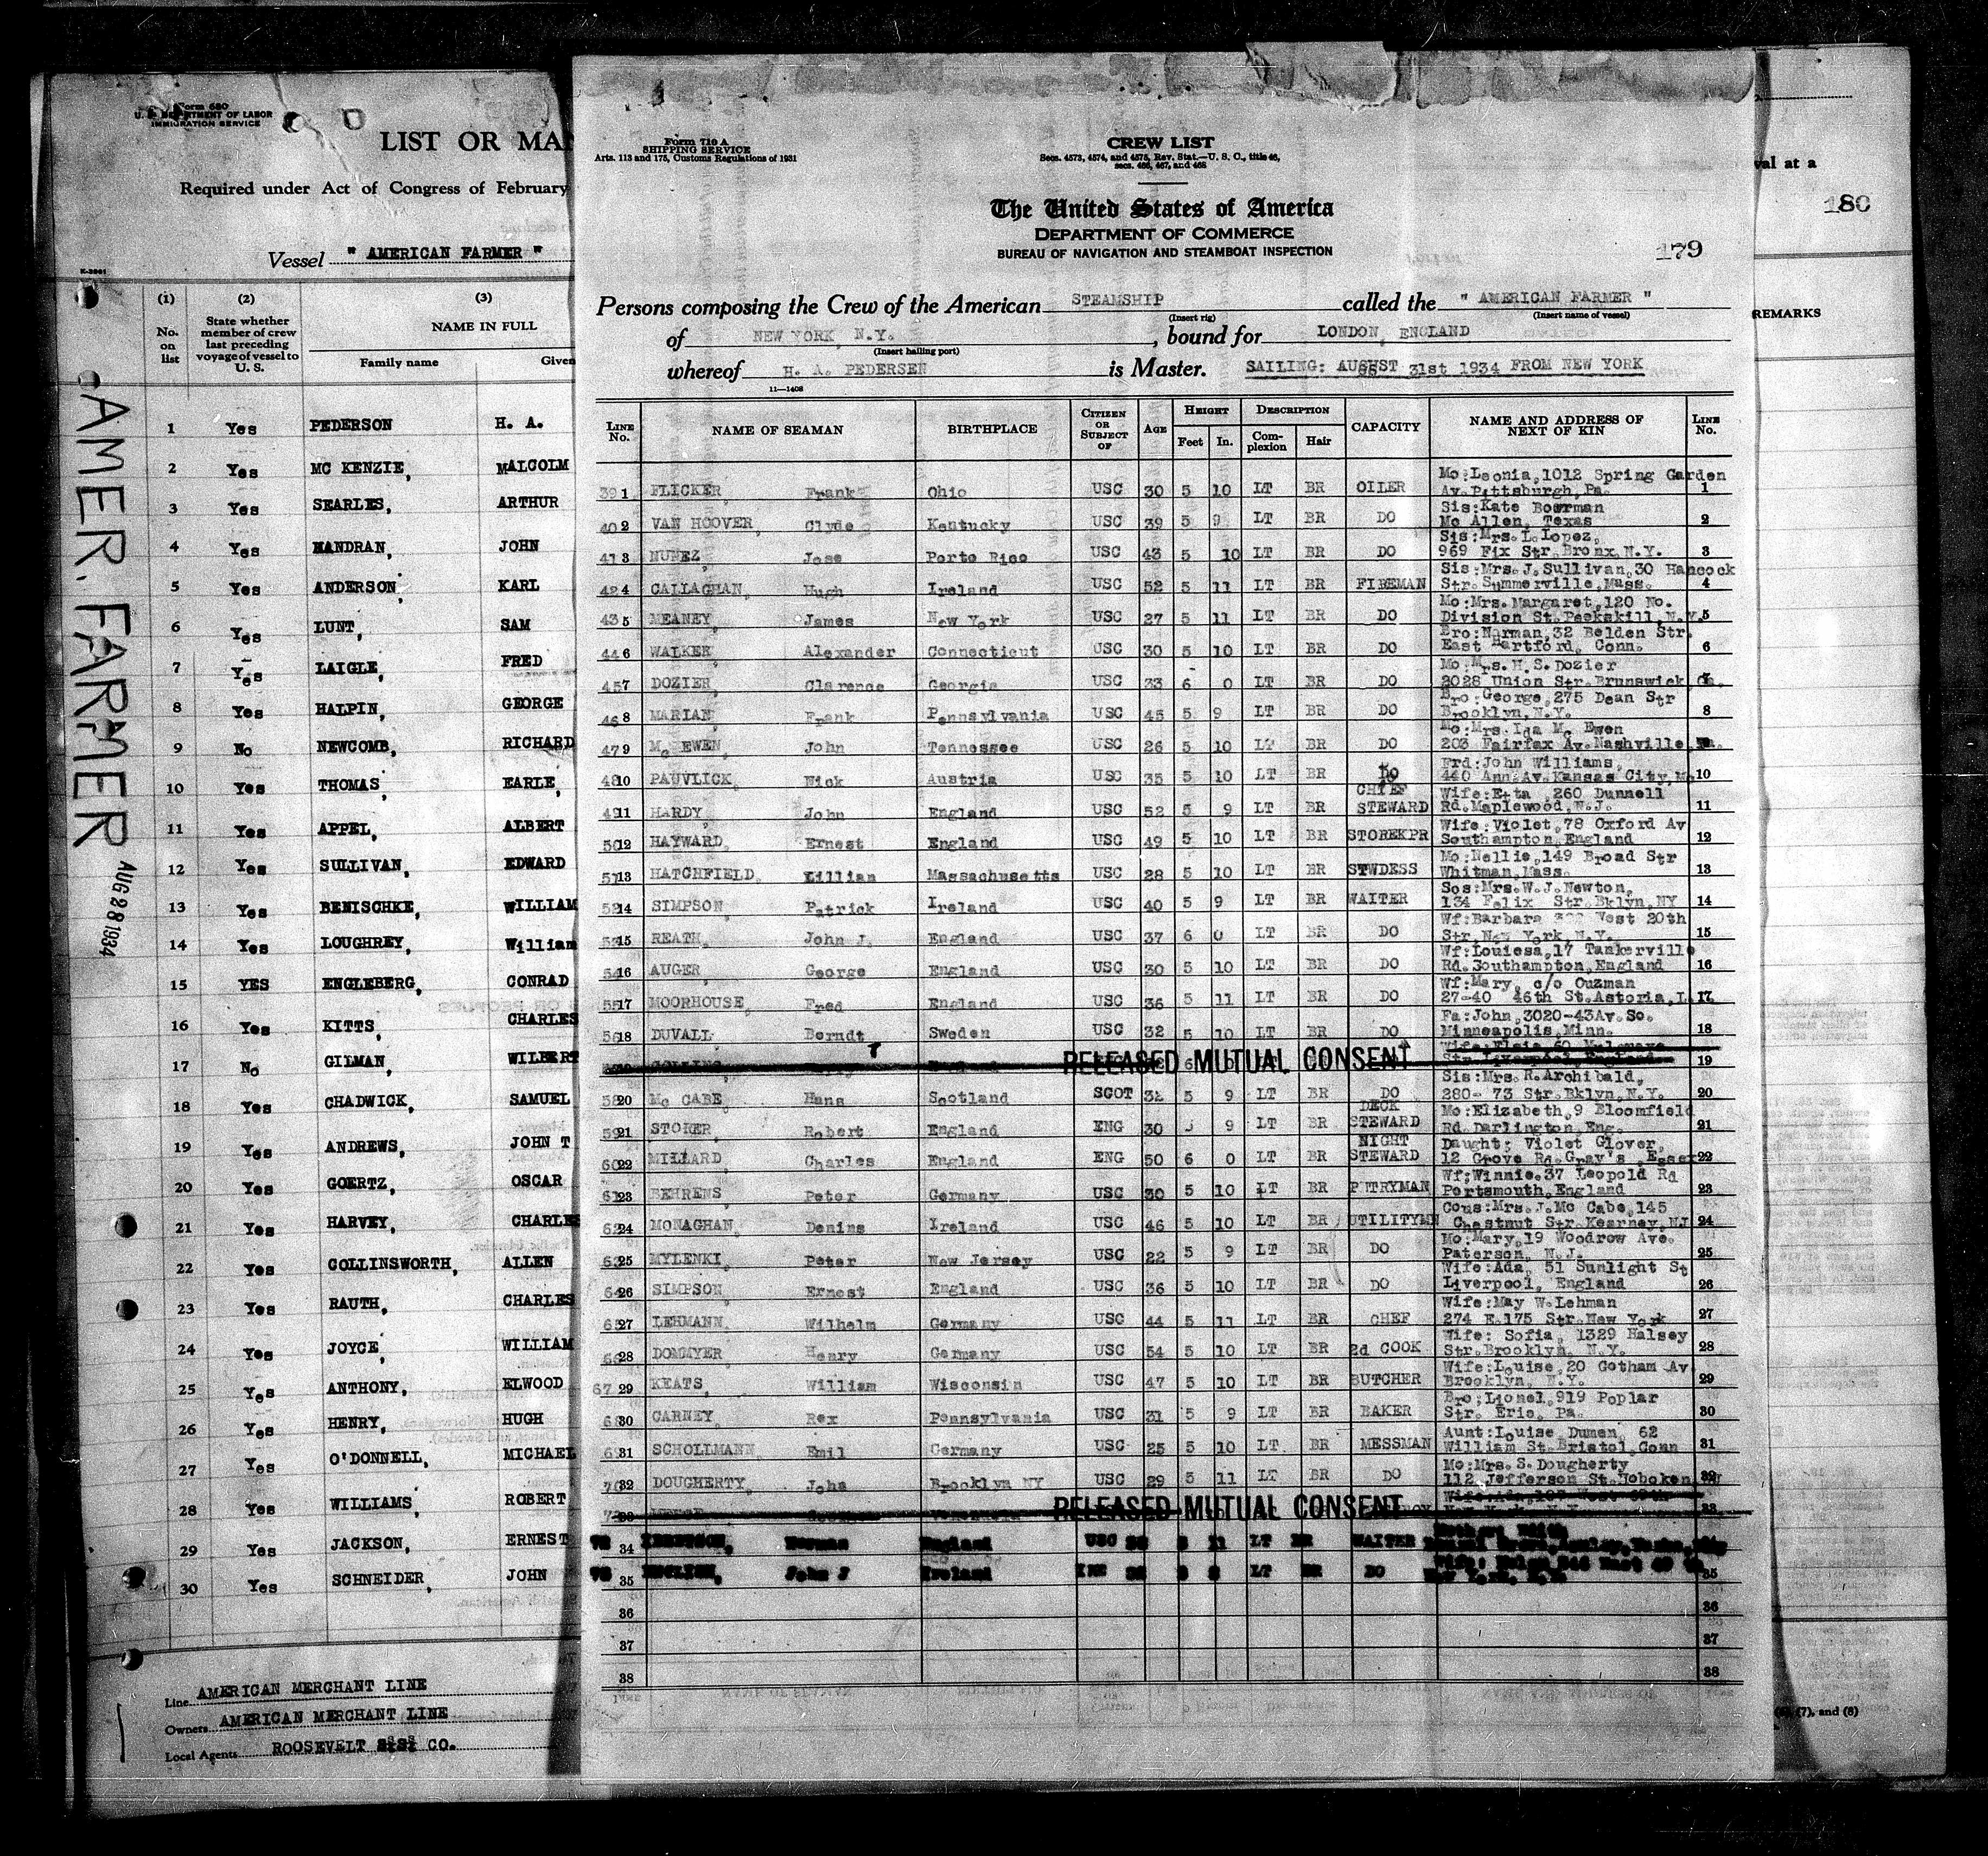 Form 680
U. S. DEPARTMENT OF LABOR
IMMIGRATION SERVICE
LIST OR MA
Required under Act of Congress of February
Vessel " AMERICAN FARMER "
(1) (2) (3)
No. on list
State whether member of crew last preceding voyage of vessel to U. S.
NAME IN FULL
Family name Given
1 Yes PEDERSON H. A.
2 Yes MC KENZIE, MALCOLM
3 Yes SEARLES, ARTHUR
4 Yes HANDRAN, JOHN
5 Yes ANDERSON, KARL
6 Yes LUNT, SAM
7 Yes LAIGLE, FRED
8 Yes HALPIN, GEORGE
9 No NEWCOMB, RICHARD
10 Yes THOMAS, EARLE,
11 Yes APPEL, ALBERT
12 Yes SULLIVAN, EDWARD
13 Yes BENISCHKE, WILLIAM
14 Yes LOUGHREY, William
15 YES ENGLEBERG, CONRAD
16 Yes KITTS, CHARLES
17 No GILMAN, WILBERT
18 Yes CHADWICK, SAMUEL
19 Yes ANDREWS, JOHN T
20 Yes GOERTZ, OSCAR
21 Yes HARVEY, CHARLES
22 Yes COLLINSWORTH, ALLEN
23 Yes RAUTH, CHARLES
24 Yes JOYCE, WILLIAM
25 Yes ANTHONY, ELWOOD
26 Yes HENRY, HUGH
27 Yes O'DONNELL, MICHAEL
28 Yes WILLIAMS, ROBERT
29 Yes JACKSON, ERNEST
30 Yes SCHNEIDER, JOHN
Line AMERICAN MERCHANT LINE
Owners AMERICAN MERCHANT LINE
Local Agents ROOSEVELT CO.
AMER. FARMER
AUG 28 1934
Form 710 A
SHIPPING SERVICE
Arts. 113 and 175, Customs Regulations of 1931
CREW LIST
Secs. 4573, 4574, and 4575, Rev. Stat.—U. S. C., title 46,
secs. 466, 467, and 468
The United States of America
DEPARTMENT OF COMMERCE
BUREAU OF NAVIGATION AND STEAMBOAT INSPECTION
179
Persons composing the Crew of the American STEAMSHIP called the " AMERICAN FARMER "
(Insert rig) (Insert name of vessel)
of NEW YORK, N.Y. , bound for LONDON, ENGLAND
(Insert hailing port)
whereof H. A. PEDERSEN is Master. SAILING: AUGUST 31st 1934 FROM NEW YORK
11—1408
LINE No. NAME OF SEAMAN BIRTHPLACE CITIZEN OR SUBJECT OF AGE HEIGHT Feet In. DESCRIPTION Complexion Hair CAPACITY NAME AND ADDRESS OF NEXT OF KIN LINE No.
39 1 FLICKER, Frank Ohio USC 30 5 10 LT BR OILER Mo:Leonia,1012 Spring Garden Av.Pittsburgh,Pa. 1
40 2 VAN HOOVER, Clyde Kentucky USC 39 5 9 LT BR DO Sis:Kate Bowrman Mc Allen, Texas 2
41 3 NUNEZ, Jose Porto Rico USC 43 5 10 LT BR DO Sis:Mrs.L.Lopez, 969 Fix Str.Bronx,N.Y. 3
42 4 CALLAGHAN, Hugh Ireland USC 52 5 11 LT BR FIREMAN Sis:Mrs.J.Sullivan,30 Hancock Str.Summerville,Mass. 4
43 5 MEANEY, James New York USC 27 5 11 LT BR DO Mo:Mrs.Margaret,120 No. Division St.Peekskill,N.Y. 5
44 6 WALKER, Alexander Connecticut USC 30 5 10 LT BR DO Bro:Norman,32 Belden Str. East Hartford, Conn. 6
45 7 DOZIER, Clarence Georgia USC 33 6 0 LT BR DO Mo:Mrs.H.S.Dozier 2028 Union Str.Brunswick,Ga. 7
46 8 MARIAN, Frank Pennsylvania USC 45 5 9 LT BR DO Bro:George,275 Dean Str Brooklyn,N.Y. 8
47 9 Mc EWEN, John Tennessee USC 26 5 10 LT BR DO Mo:Mrs.Ida Mc Ewen 203 Fairfax Av.Nashville
48 10 PAUVLICK, Nick Austria USC 35 5 10 LT BR DO Frd:John Williams, 440 Ann.Av.Kansas City,Mo 10
49 11 HARDY, John England USC 52 5 9 LT BR CHIEF STEWARD Wife:Etta ,260 Dunnell Rd.Maplewood,N.J. 11
50 12 HAYWARD, Ernest England USC 49 5 10 LT BR STOREKPR Wife:Violet,78 Oxford Av Southampton,England 12
51 13 HATCHFIELD, Lillian Massachusetts USC 28 5 10 LT BR STWDESS Mo:Nellie,149 Broad Str Whitman,Mass. 13
52 14 SIMPSON, Patrick Ireland USC 40 5 9 LT BR WAITER Sos:Mrs.W.J.Newton, 134 Felix Str.Bklyn,NY 14
53 15 REATH, John J. England USC 37 6 0 LT BR DO Wf:Barbara West 20th Str.New York N.Y. 15
54 16 AUGER, George England USC 30 5 10 LT BR DO Wf:Louiesa,17 Tankerville Rd.Southampton,England 16
55 17 MOORHOUSE, Fred England USC 36 5 11 LT BR DO Wf:Mary, c/o Ouzman 27-40 46th St.Astoria,L 17
56 18 DUVALL, Berndt Sweden USC 32 5 10 LT BR DO Fa:John,3020-43Av.So. Minneapolis,Minn. 18
RELEASED MUTUAL CONSENT 19
58 20 Mc CABE, Hans Scotland SCOT 32 5 9 LT BR DO Sis:Mrs.R.Archibald, 280- 73 Str.Bklyn,N.Y. 20
59 21 STOKER, Robert England ENG 30 5 9 LT BR DECK STEWARD Mo:Elizabeth,9 Bloomfield Rd.Darlington,Eng. 21
60 22 MILLARD, Charles England ENG 50 6 0 LT BR NIGHT STEWARD Daught: Violet Glover, 12 Grove Rd.Gray's ,Essex 22
61 23 BEHRENS, Peter Germany USC 30 5 10 LT BR PTTRYMAN Wf;Winnie,37 Leopold Rd Portsmouth,England 23
62 24 MONAGHAN, Denins Ireland USC 46 5 10 LT BR UTILITYMN Cous:Mrs.J.Mc Cabe,145 Chestnut Str.Kearney,NJ 24
63 25 MYLENKI, Peter New Jersey USC 22 5 9 LT BR DO Mo:Mary,19 Woodrow Ave. Paterson, N.J. 25
64 26 SIMPSON, Ernest England USC 36 5 10 LT BR DO Wife:Ada, 51 Sunlight St Liverpool, England 26
65 27 LEHMANN, Wilhelm Germany USC 44 5 11 LT BR CHEF Wife:May W.Lehman 274 E.175 Str.New York 27
66 28 DOMMYER, Henry Germany USC 54 5 10 LT BR 2d COOK Wife: Sofia, 1329 Halsey Str.Brooklyn, N.Y. 28
67 29 KEATS, William Wisconsin USC 47 5 10 LT BR BUTCHER Wife:Louise,20 Gotham Av. Brooklyn, N.Y. 29
68 30 CARNEY, Rex Pennsylvania USC 31 5 9 LT BR BAKER Bro;Lionel,919 Poplar Str. Erie, Pa. 30
69 31 SCHOLLMANN, Emil Germany USC 25 5 10 LT BR MESSMAN Aunt:Louise Dumen, 62 William St.Bristol,Conn 31
70 32 DOUGHERTY, John Brooklyn NY USC 29 5 11 LT BR DO Mo:Mrs.S.Dougherty 112 Jefferson St.Hoboken 32
RELEASED MUTUAL CONSENT 33
34 Norman England USC 5 11 LT BR WAITER
35 ENGLISH, John J Ireland LT BR DO 35
36 36
37 37
38 38
val at a
180
REMARKS
(7), and (8)